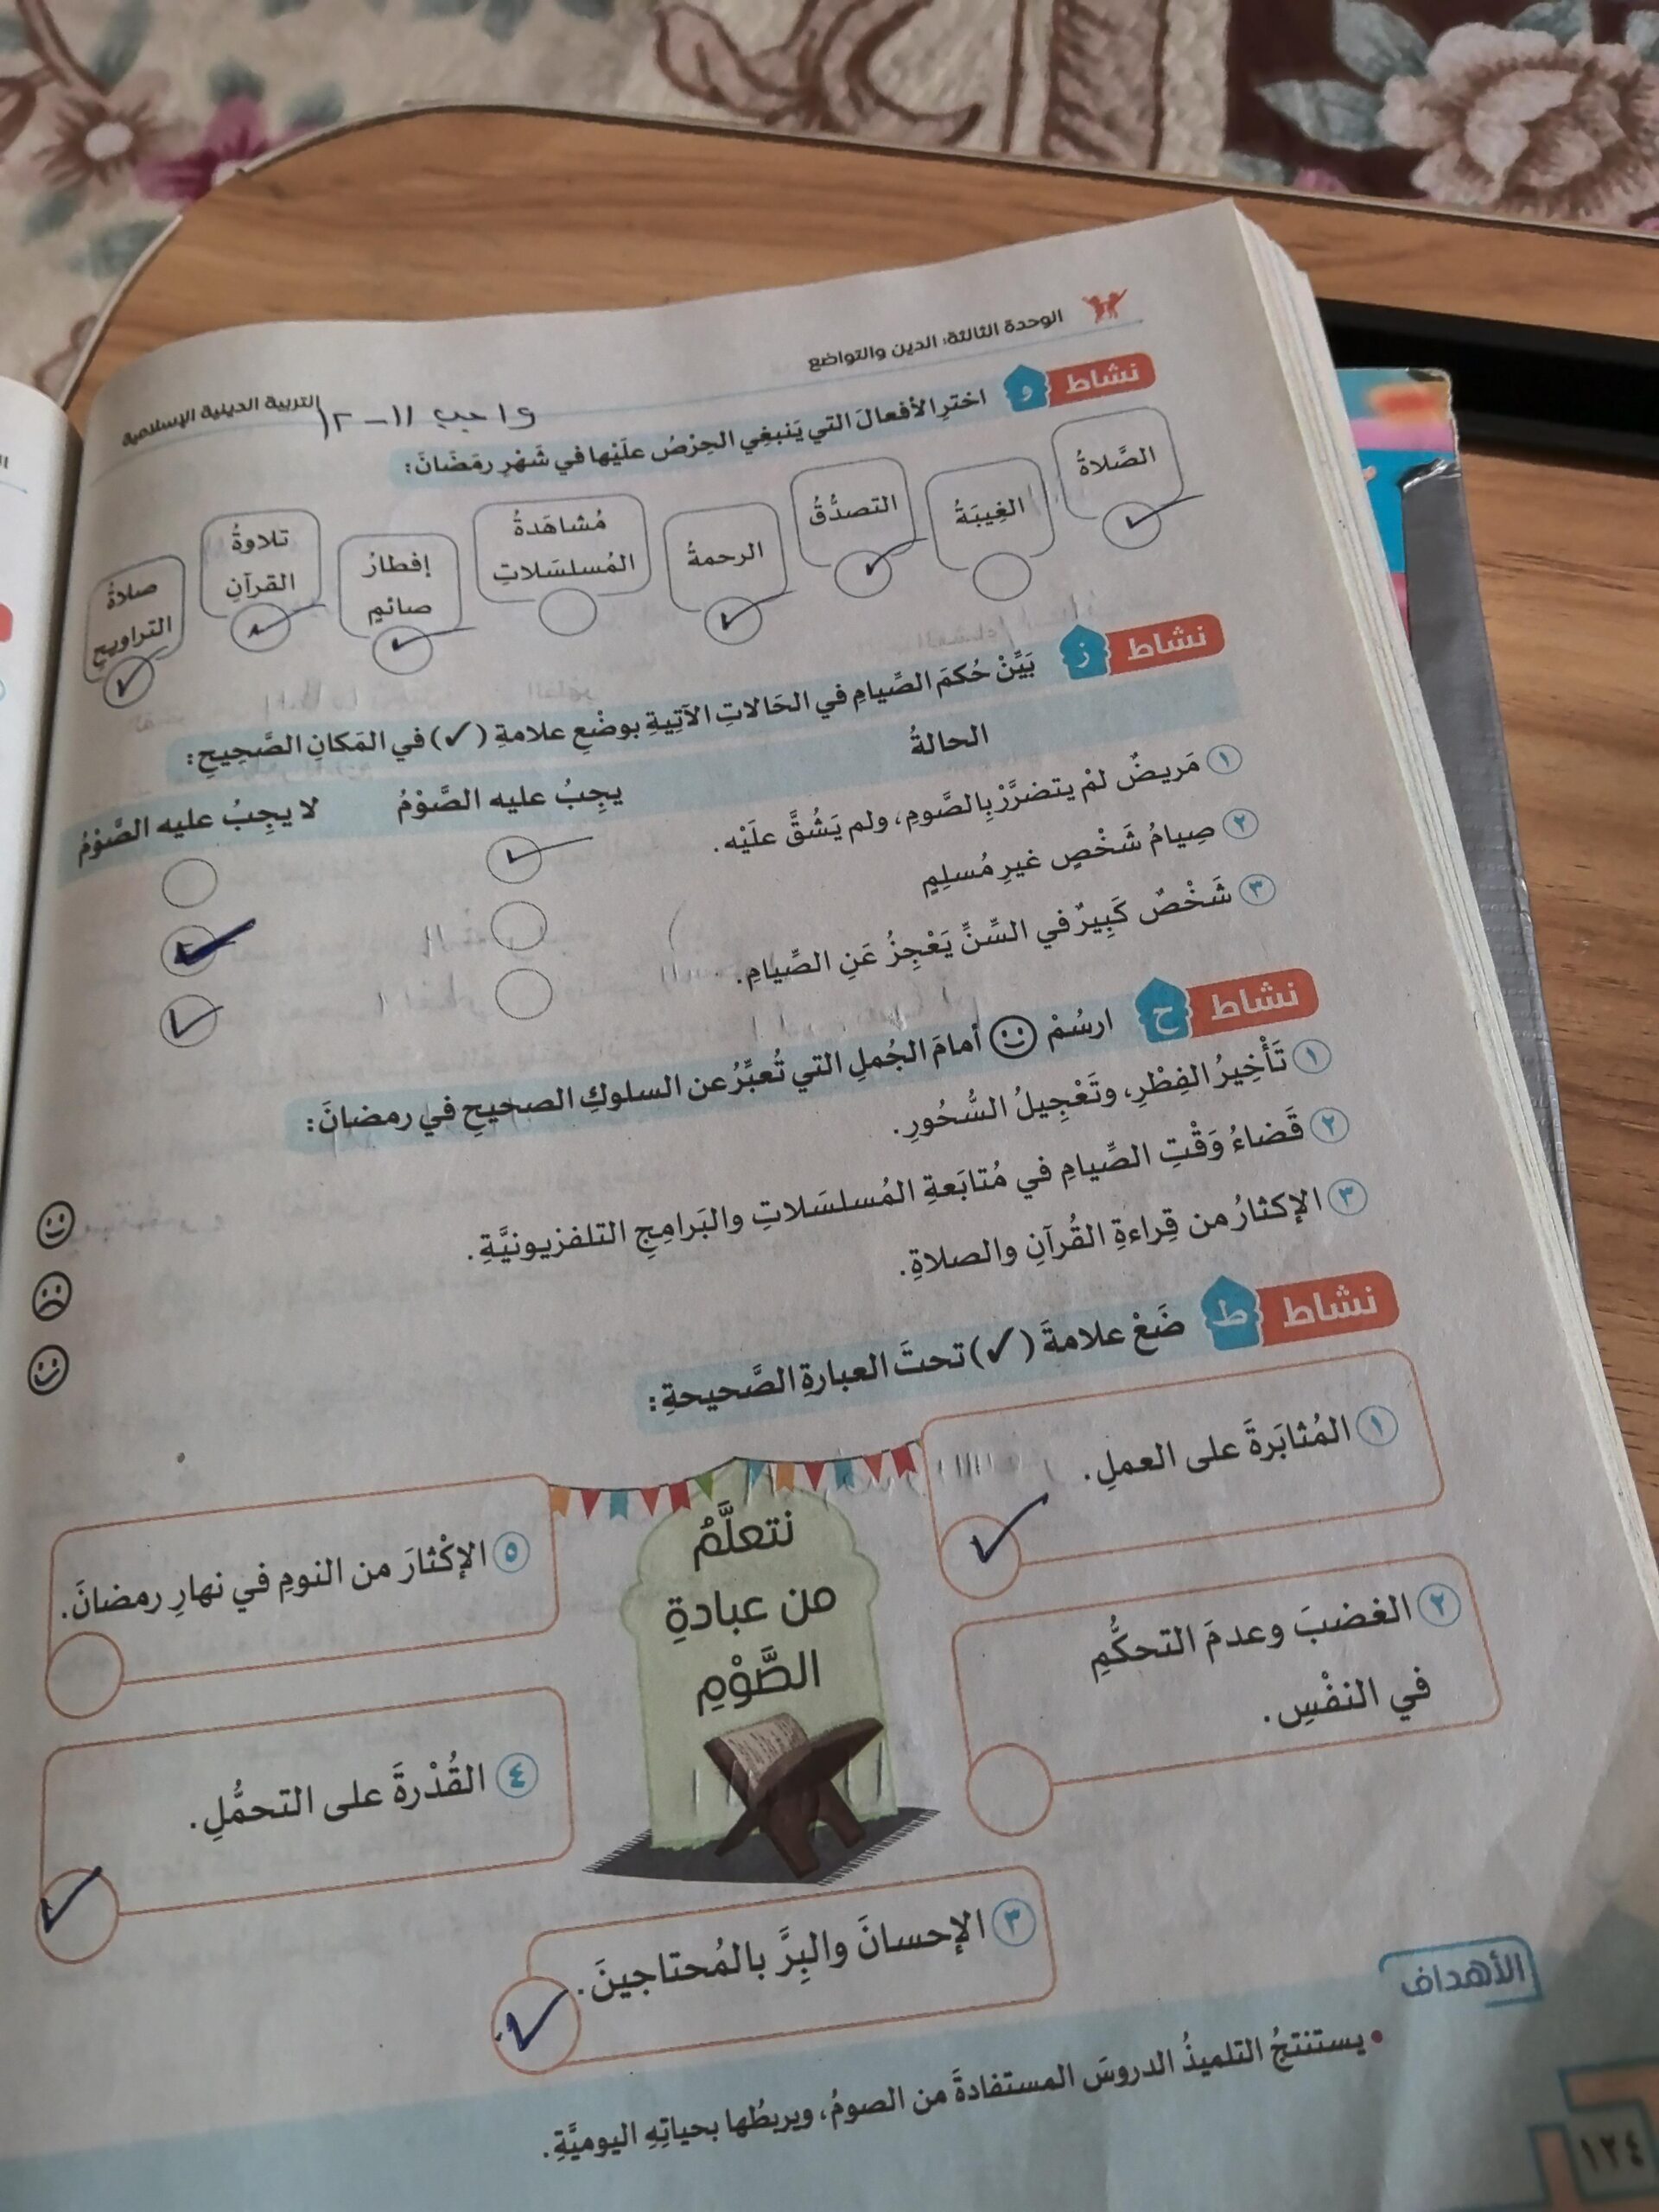 الوحدة الثالثة: الدين والتواضع
التربية الدينية الإسلامية
واجب ١١-١٢
نشاط و اخترِ الأفعالَ التي يَنبغِي الحِرْصُ علَيْها في شَهْرِ رمَضَانَ:
الصَّلاةُ
الغِيبَةُ
التصدُّقُ
الرحمةُ
مُشاهَدةُ
المُسلسَلاتِ
إفطارُ
صائمٍ
تلاوةُ
القرآنِ
صلاةُ
التراويحِ
نشاط ز بَيِّنْ حُكمَ الصِّيامِ في الحَالاتِ الآتِيةِ بوضْعِ علامةِ (✓) في المَكانِ الصَّحِيحِ:
الحالةُ يجِبُ عليه الصَّوْمُ لا يجِبُ عليه الصَّوْمُ
١ مَريضٌ لمْ يتضرَّرْ بِالصَّومِ، ولم يَشُقَّ علَيْه.
٢ صِيامُ شَخْصٍ غيرِ مُسلِمٍ
٣ شَخْصٌ كَبِيرٌ في السِّنِّ يَعْجِزُ عَنِ الصِّيامِ.
نشاط ح ارسُمْ أمامَ الجُملِ التي تُعبِّرُ عن السلوكِ الصحيحِ في رمضانَ:
١ تَأْخِيرُ الفِطْرِ، وتَعْجِيلُ السُّحُورِ.
٢ قَضاءُ وَقْتِ الصِّيامِ في مُتابَعةِ المُسلسَلاتِ والبَرامِجِ التلفزيونيَّةِ.
٣ الإكثارُ من قِراءةِ القُرآنِ والصلاةِ.
نشاط ط ضَعْ علامةَ (✓) تحتَ العبارةِ الصَّحيحةِ:
نتعلَّمُ
من عبادةِ
الصَّوْمِ
١ المُثابَرةَ على العملِ.
٢ الغضبَ وعدمَ التحكُّمِ
في النفْسِ.
٣ الإحسانَ والبِرَّ بالمُحتاجينَ.
٤ القُدْرةَ على التحمُّلِ.
٥ الإكْثارَ من النومِ في نهارِ رمضانَ.
الأهداف
• يستنتجُ التلميذُ الدروسَ المستفادةَ من الصومُ، ويربطُها بحياتِهِ اليوميَّةِ.
١٢٤